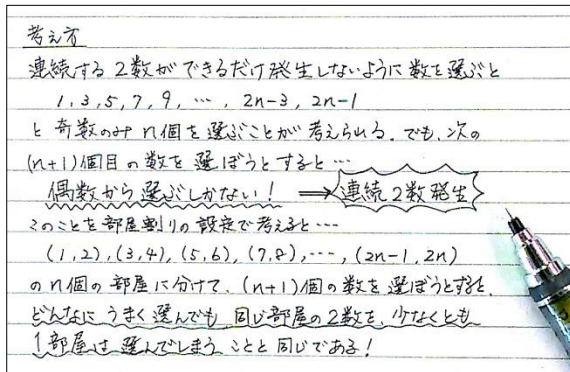 考え方
連続する2数ができるだけ発生しないように数を選ぶと
1, 3, 5, 7, 9, …, 2n-3, 2n-1
と奇数のみn個を選ぶことが考えられる。でも、次の
(n+1)個目の数を選ぼうとすると…
偶数から選ぶしかない! ⟹ 連続2数発生
このことを部屋割りの設定で考えると…
(1,2),(3,4),(5,6),(7,8),…,(2n-1,2n)
のn個の部屋に分けて、(n+1)個の数を選ぼうとすると、
どんなにうまく選んでも同じ部屋の2数を、少なくとも
1部屋は選んでしまうことと同じである!